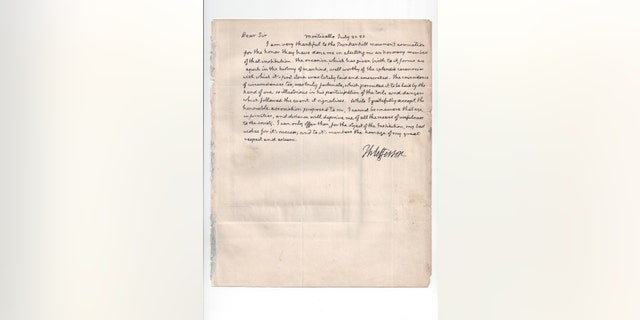 Dear Sir Monticello July
I am very thankful to the Bunkerhill monument association
for the honor they have done me in electing me an honorary member
of that institution. the occasion which has given birth to it forms an
epoch in the history of mankind, well worthy of the splendid ceremonies
with which it's first stone was lately laid and consecrated. the coincidence
of circumstances too, was truly fortunate, which permitted it to be laid by the
hand of one so illustrious in his participation of the toils and dangers
which followed the event it signalises. While I gratefully accept the
honorable association proposed to me, I cannot be unaware that age,
infirmities, and distance will deprive me of all the means of usefulness
to the society. I can only offer then, for the object of the Institution, my best
wishes for it's success, and to it's members the homage of my great
respect and esteem.
Th: Jefferson